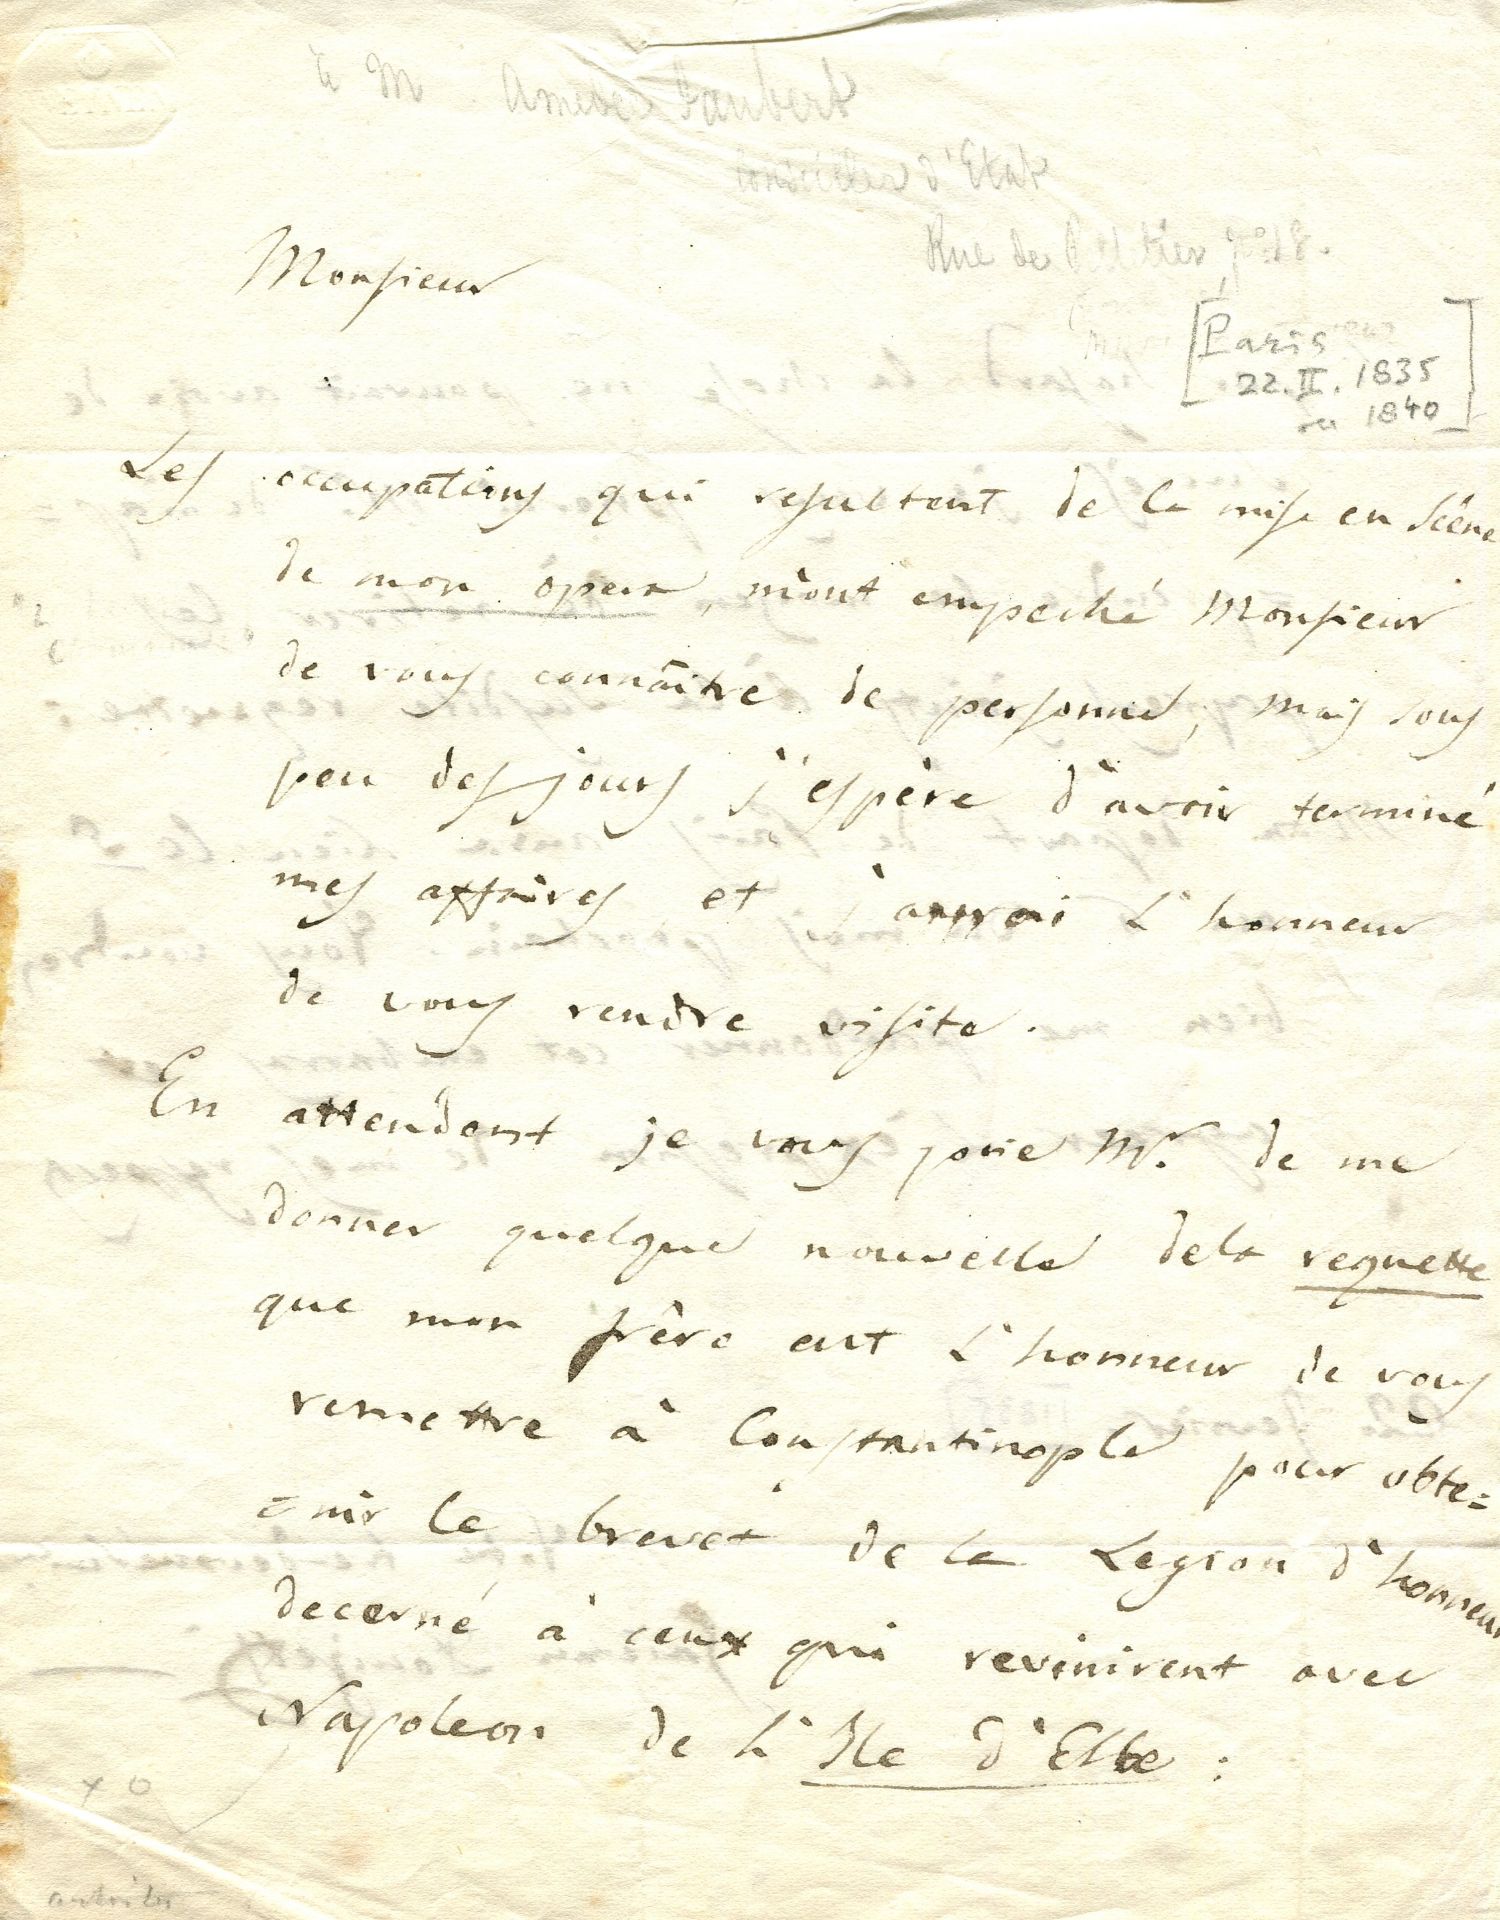 à M Amedée Jaubert
Conseiller d'Etat
Rue de Pelletier No 18.
Monsieur
[Paris
22. II. 1835
ou 1840]
Les occupations qui resultent de la mise en Scêne
de mon opera, m'ont empeché Monsieur
de vous connaître de personne, mais sous
peu des jours j'espère d'avoir terminé
mes affaires et j'aurai L'honneur
de vous rendre visite.
En attendant je vous prie Mr. de me
donner quelque nouvelle dela requette
que mon frère eut L'honneur de vous
remettre à Constantinople pour obte=
=nir le brevet de la Legion d'honneur
decerné à ceux qui revinirent avec
Napoleon de L'Ile d'Elbe :
x o